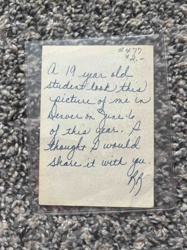 #477
$2.-
A 19 year old
student took this
picture of me in
Denver on June 6
of this year. I
thought I would
share it with you.